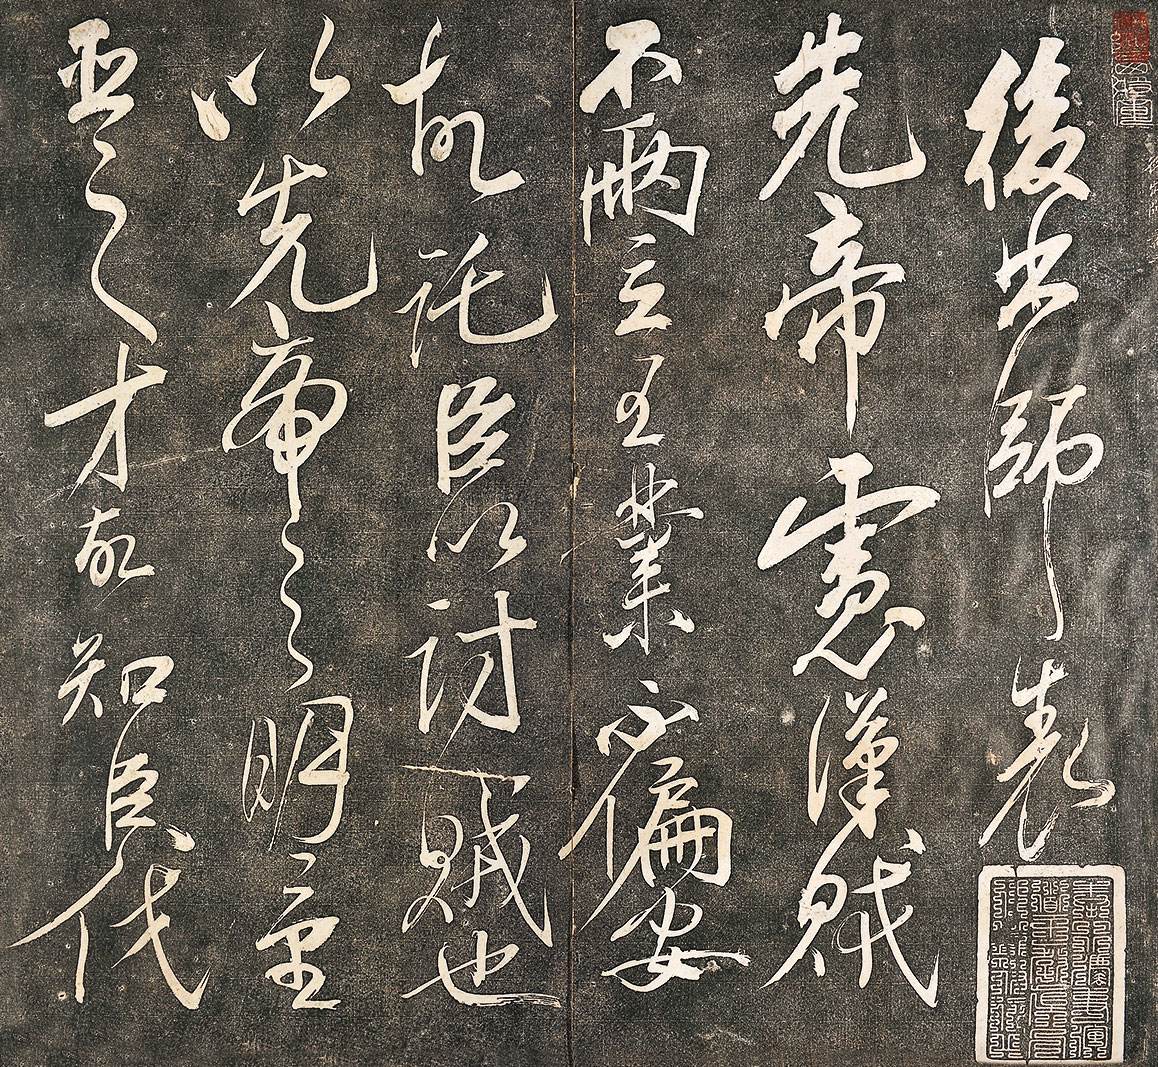 後出師表
先帝慮漢賊
不兩立王業不偏安
故託臣以討賊也
以先帝之明量
臣之才故知臣伐